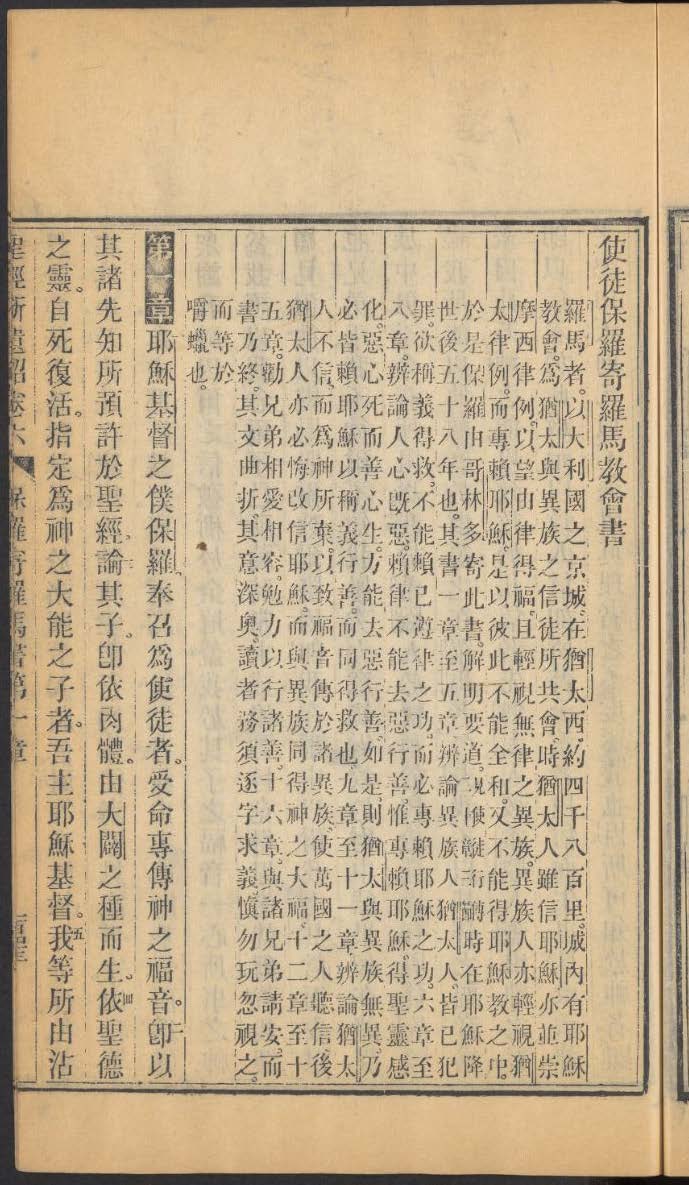 使徒保羅寄羅馬教會書
羅馬者。以大利國之京城。在猶太西。約四千八百里。城內有耶穌
教會。為猶太與異族之信徒所共會。時猶太人雖信耶穌。亦並崇
摩西律例。以望由律得福。且輕視無律之異族。異族人亦輕視猶
太律例。而專賴耶穌。是以彼此不能全和。又不能得耶穌教之中。
於是保羅由哥林多寄此書。解明要道。時在耶穌降
世後五十八年也。其書一章至五章。辨論異族人猶太人。皆已犯
罪。欲稱義得救。不能賴已遵律之功。而必專賴耶穌之功。六章至
八章。辨論人心既惡。賴律不能去惡行善。惟專賴耶穌。得聖靈感
化。惡心死而善心生。方能去惡行善。如是。則猶太與異族無異。乃
必皆賴耶穌以稱義行善。而同得救也。九章至十一章。辨論猶太
人不信。而為神所棄。以致福音傳於諸異族。使萬國之人聽信後
猶太人亦必悔改信耶穌。而與異族同得神之大福。十二章至十
五章。勸兄弟相愛相容。勉力以行諸善。十六章。與諸兄弟請安。而
書乃終。其文曲折。其意深奧。讀者務須逐字求義。慎勿玩忽視之。
而等於
嚼蠟也。
第一章耶穌基督之僕保羅。奉召為使徒者。受命專傳神之福音。二卽以
其諸先知所預許於聖經。三論其子。卽依肉體。由大闢之種而生。四依聖德
之靈。自死復活。指定為神之大能之子者。吾主耶穌基督。五我等所由沾
聖經新遺詔卷六 保羅寄羅馬書第一章